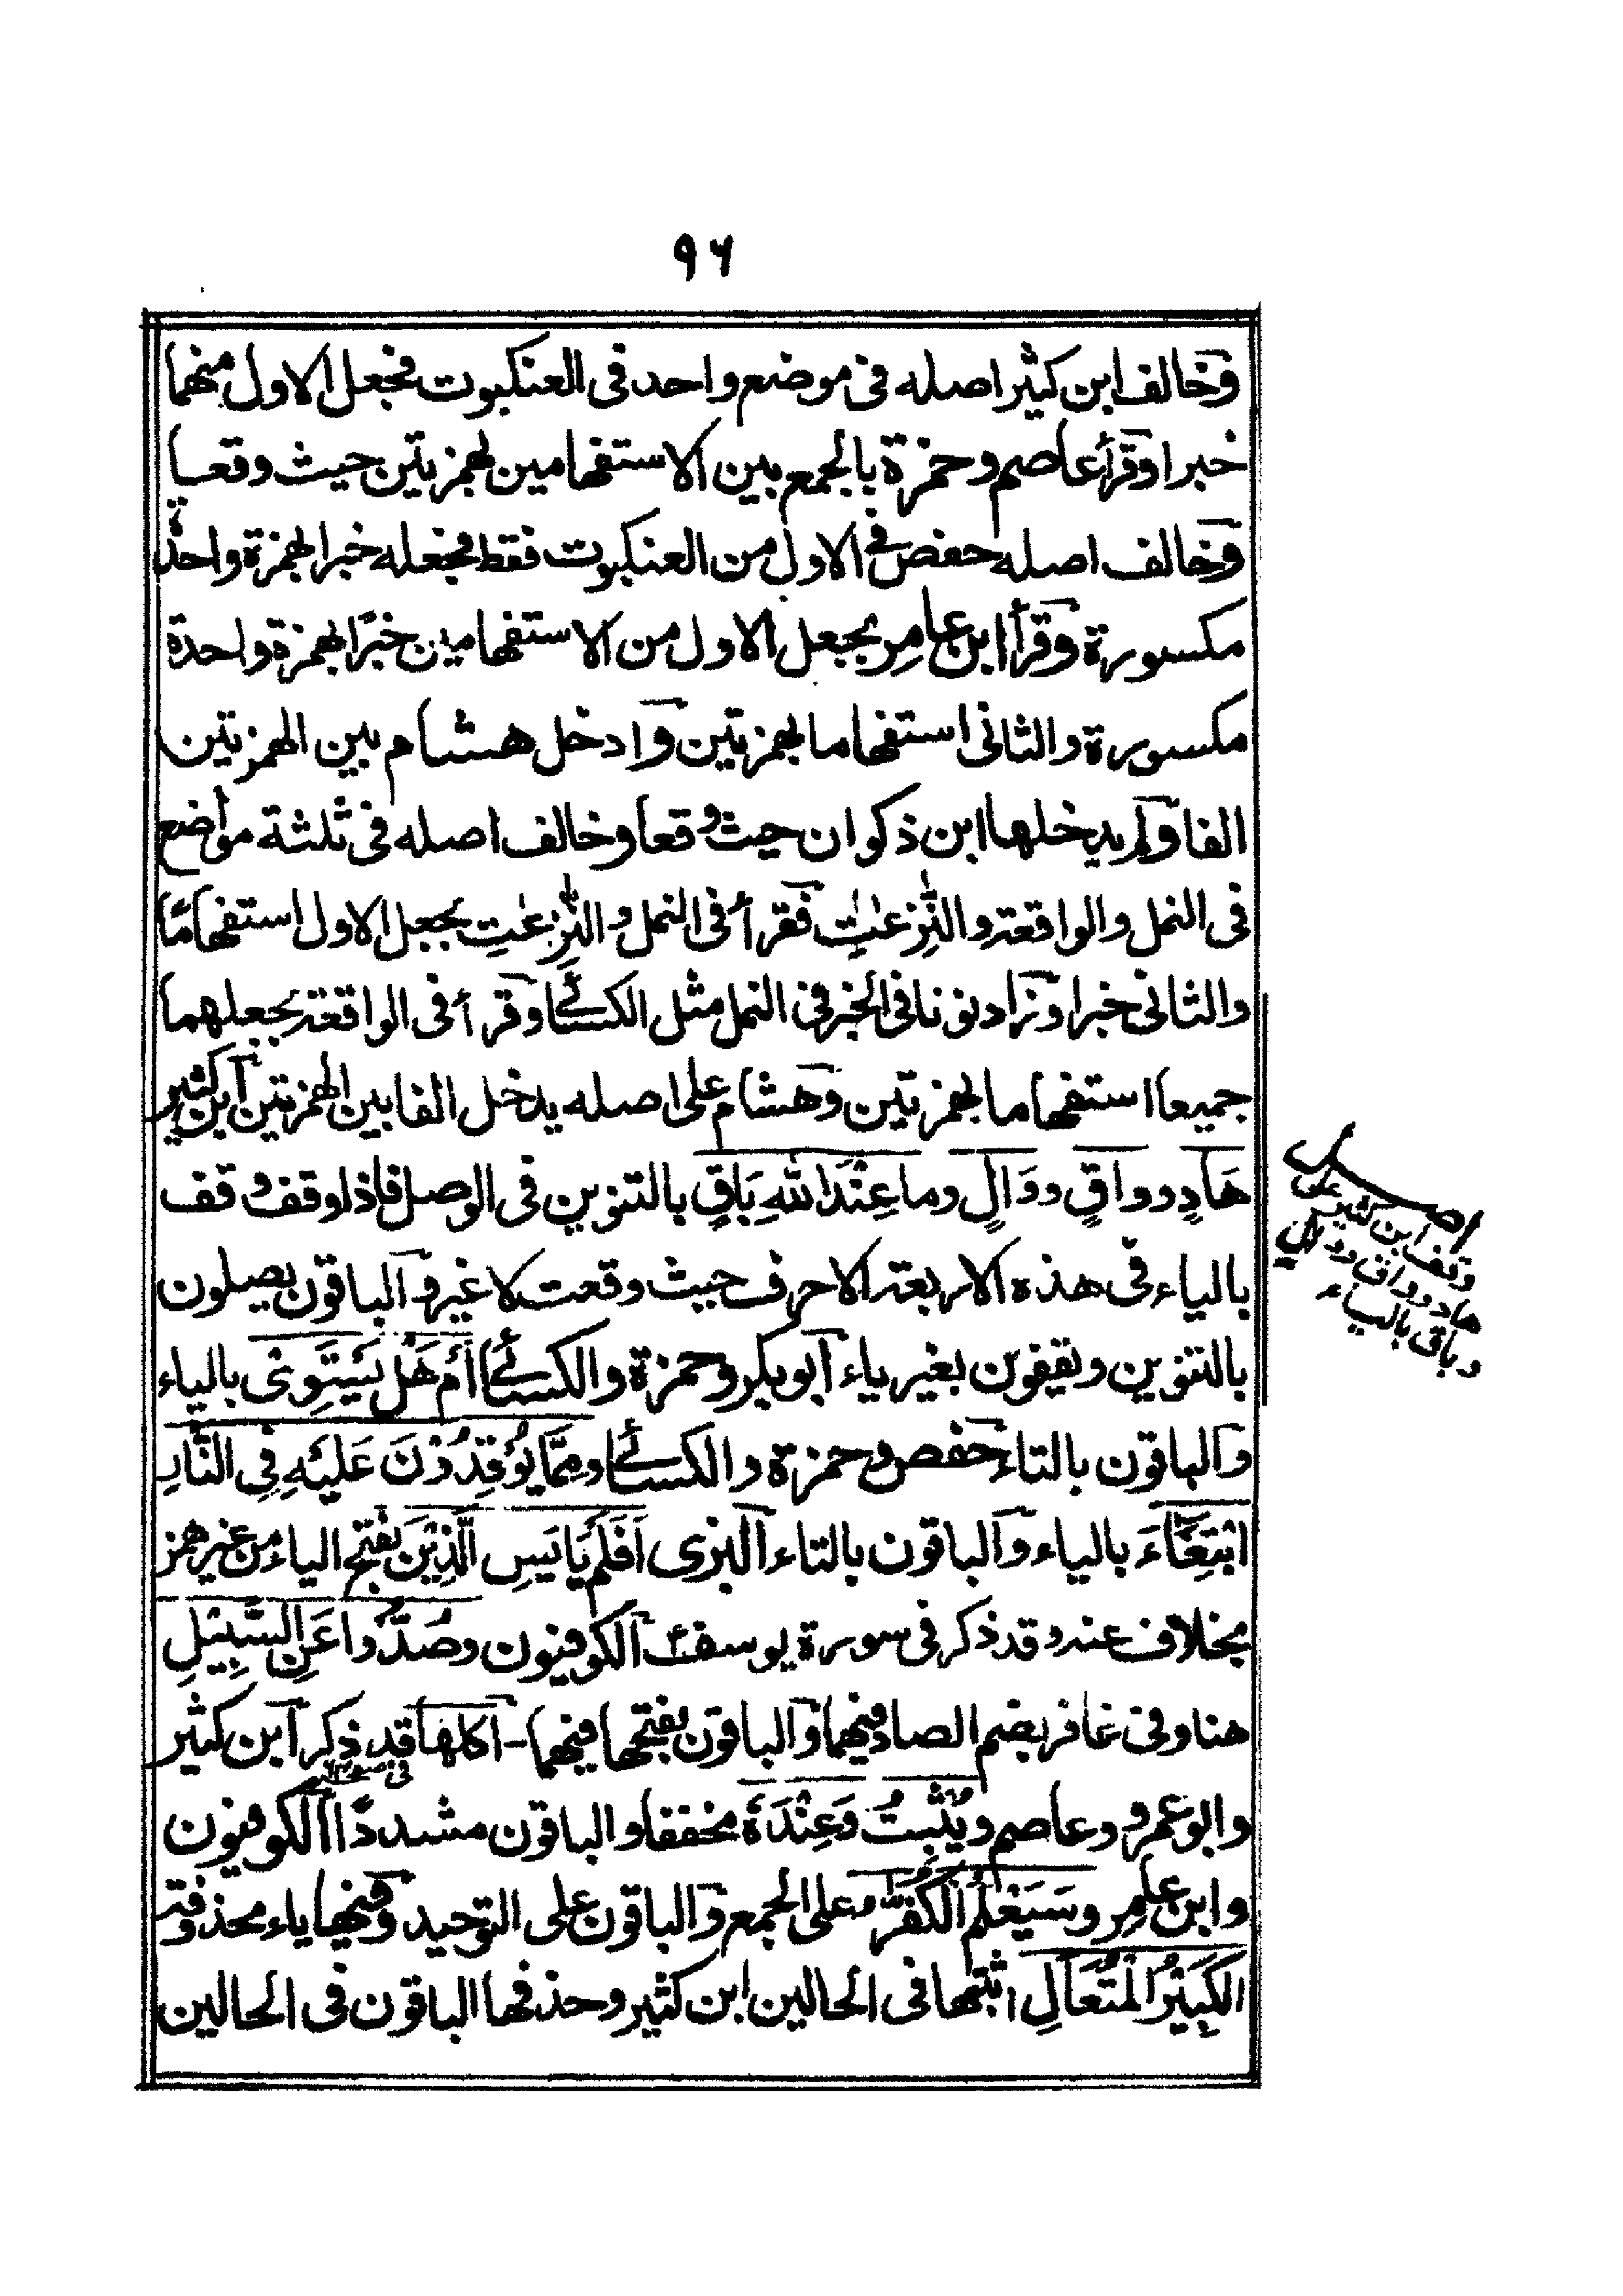 ٩٦
وخالف ابن كثير اصله فى موضع واحد فى العنكبوت فجعل الاول منهما
خبرا وقرأ عاصم وحمزة بالجمع بين الاستفهامين بهمزتين حيث وقعا
وخالف اصله حفص فى الاول من العنكبوت فقط فجعله خبرا بهمزة واحدة
مكسورة وقرأ ابن عامر بجعل الاول من الاستفهامين خبرًا بهمزة واحدة
مكسورة والثانى استفهاما بهمزتين وادخل هشام بين الهمزتين
الفا ولم يدخلها ابن ذكوان حيث وقعا وخالف اصله فى ثلثة مواضع
فى النمل والواقعة والنّٰزعٰتِ فقرأ فى النمل والنّٰزعٰتِ بجعل الاول استفهامًا
والثانى خبرا وزاد نونا فى الخبر فى النمل مثل الكسائے وقرأ فى الواقعة بجعلهما
جميعا استفهاما بهمزتين وهشام على اصله يدخل الفا بين الهمزتين ابن كثير
هَادٍ و واقٍ و وَالٍ وما عِنْدَ اللهِ بَاقٍ بالتنوين فى الوصل فاذا وقف وقف
بالياء فى هذه الاربعة الاحرف حيث وقعت لا غير والباقون يصلون
بالتنوين ويقفون بغير ياء ابو بكر وحمزة والكسائے اَمْ هَلْ يَسْتَوِىْ بالياء
والباقون بالتاء حفص وحمزة والكسائے ومِمَّا يُوْقِدُوْنَ عَلَيْهِ فِى النَّارِ
ابْتِغَآءَ بالياء والباقون بالتاء البزى اَفَلَمْ يَايَسِ الَّذِيْنَ بفتح الياء من غير همز
بخلاف عنه وقد ذكر فى سورة يوسف الكوفيون وصُدُّوا عَنِ السَّبِيْلِ
هنا وفى غافر بضم الصاد فيهما والباقون بفتحها فيهما - اكلها قد ذكر ابن كثير
وابو عمرو وعاصم ويُثْبِتُ وَعِنْدَهٗ مخففا والباقون مشددًا الكوفيون
وابن عامر وسَيَعْلَمُ الْكُفّٰرُ على الجمع والباقون على التوحيد وفيها ياء محذوفة
الْكَبِيْرُ الْمُتَعَالِ اثبتها فى الحالين ابن كثير وحذفها الباقون فى الحالين
اصل
وقف ابن كثير على
هاد و واق و وال
و باق بالياء